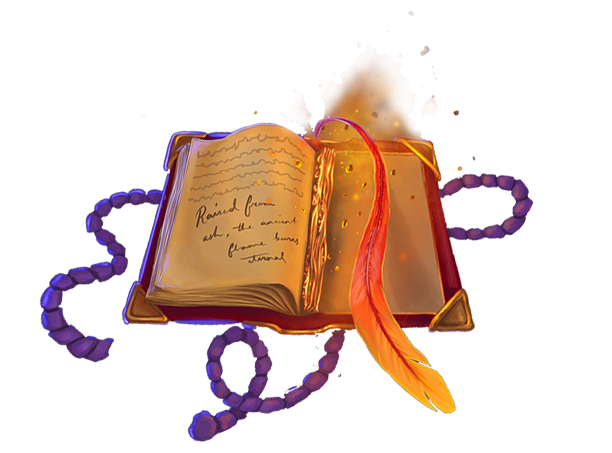 Raised from
ash, the ancient
flame burns
eternal